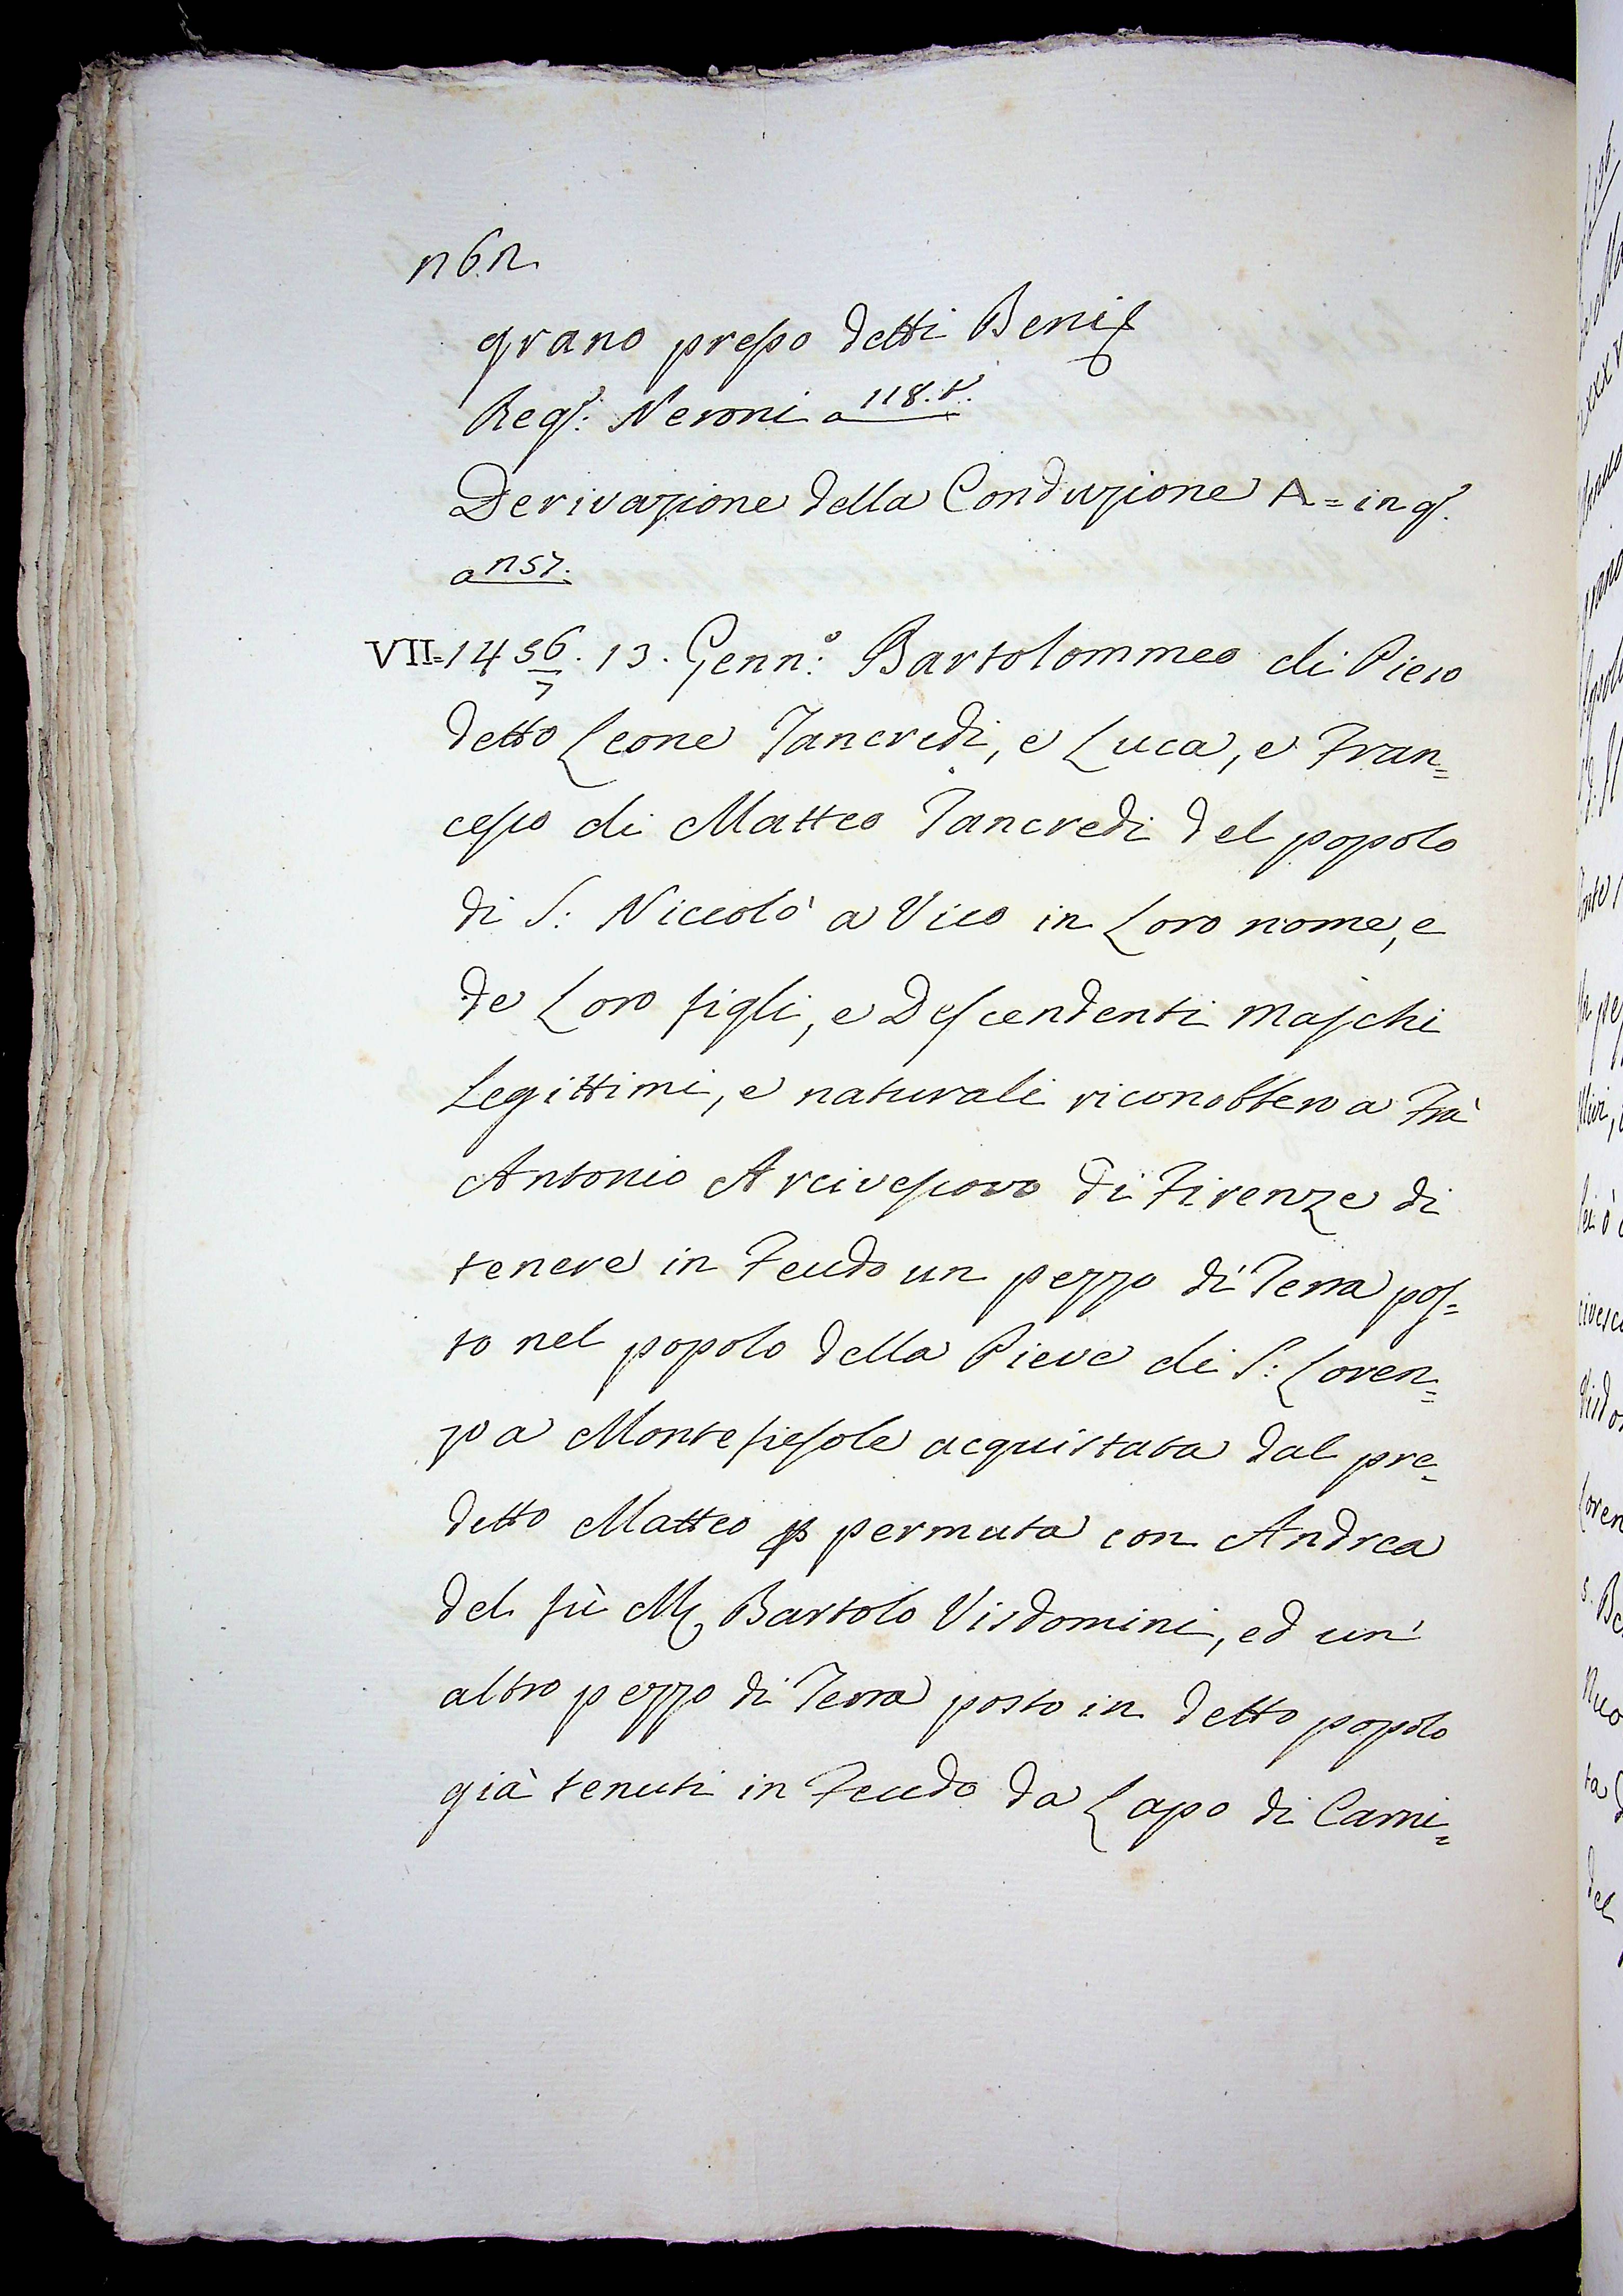 262
grano presso detti Beni
Reg.º: Neroni a 118.t.
Derivazione della Conduzione A = in q.º
a 257.
VII = 1456/7. 13. Genn.º: Bartolommeo di Piero
detto Leone Tancredi, e Luca, e Fran=
cesco di Matteo Tancredi del popolo
di S: Niccolò a Vico in Loro nome, e
de Loro figli, e Descendenti maschi
Legittimi, e naturali riconobbero a Frà
Antonio Arcivescovo di Firenze di
tenere in Feudo un pezzo di Terra pos=
to nel popolo della Pieve di S: Loren=
zo a Montefiesole acquistata dal pre=
detto Matteo p permuta con Andrea
del fù M Bartolo Visdomini, ed un'
altro pezzo di Terra posto in detto popolo
già tenuti in Feudo da Lapo di Cami=